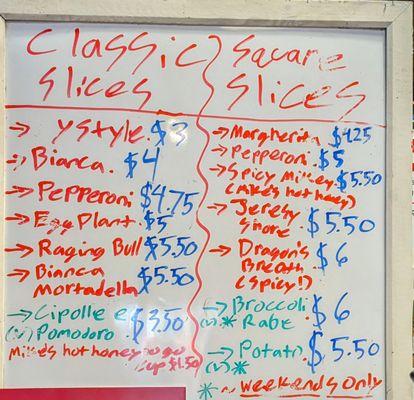 Classic
Slices
→ YStyle. $3
→ Bianca. $4
→ Pepperoni $4.75
→ Egg Plant. $5
→ Raging Bull $5.50
→ Bianca
Mortadella $5.50
→ Cipolle e
(v) Pomodoro $3.50
Mike's hot honey to go
cup $1.50
Square
Slices
→ Margherita $4.25
→ Pepperoni. $5
→ Spicy Mikey $5.50
(Mike's hot honey)
→ Jersey
Shore $5.50
→ Dragon's
Breath $6
(Spicy!)
→ Broccoli $6
(v) * Rabe
→ Potato $5.50
(v) *
* ~ weekends only